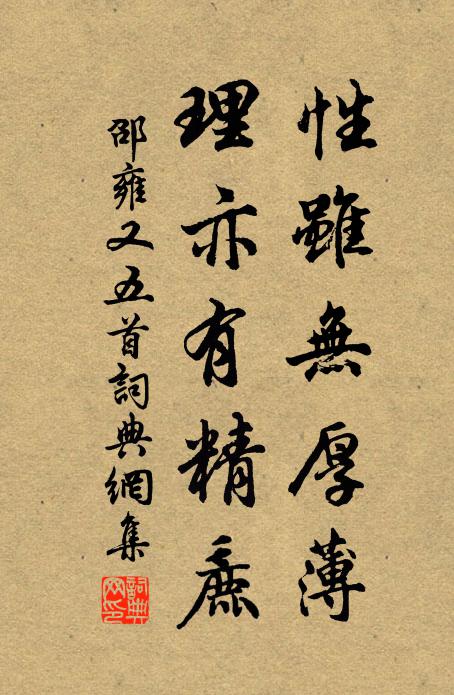 性雖無厚薄
理亦有精麁
邵雍又五首詞典網集
詞典网印